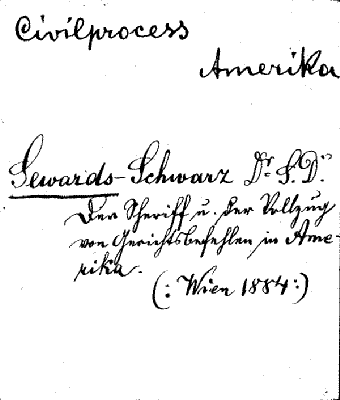 Civilprocess
Amerika
Sewards-Schwarz Dr. S. D.
Der Sheriff u. der Vollzug
von Gerichtsbefehlen in Ame-
rika.
(: Wien 1884 :)